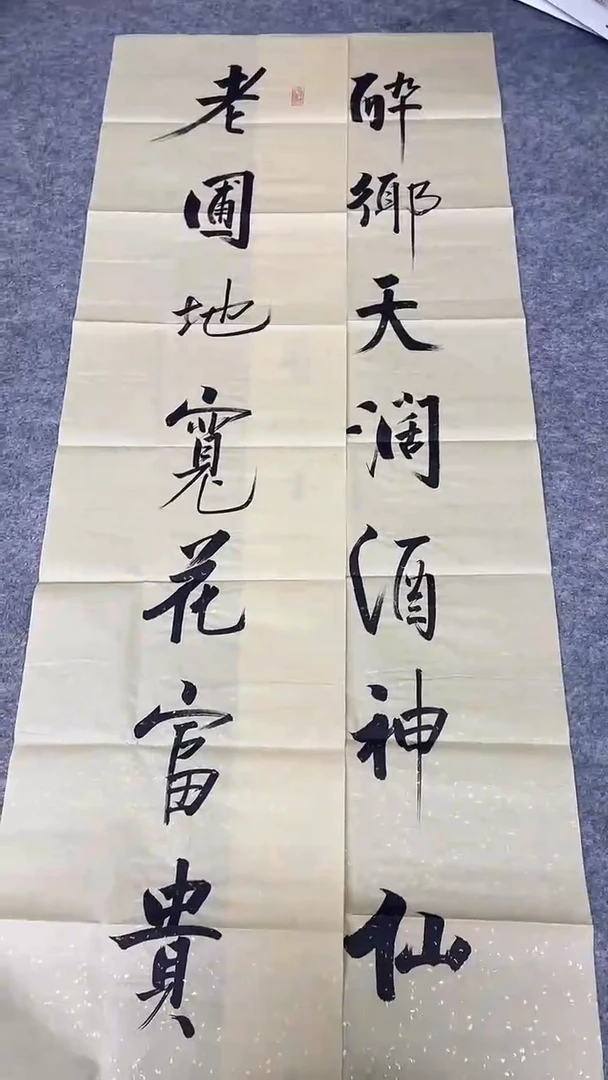 醉鄉天濶酒神仙
老圃地寬花富貴